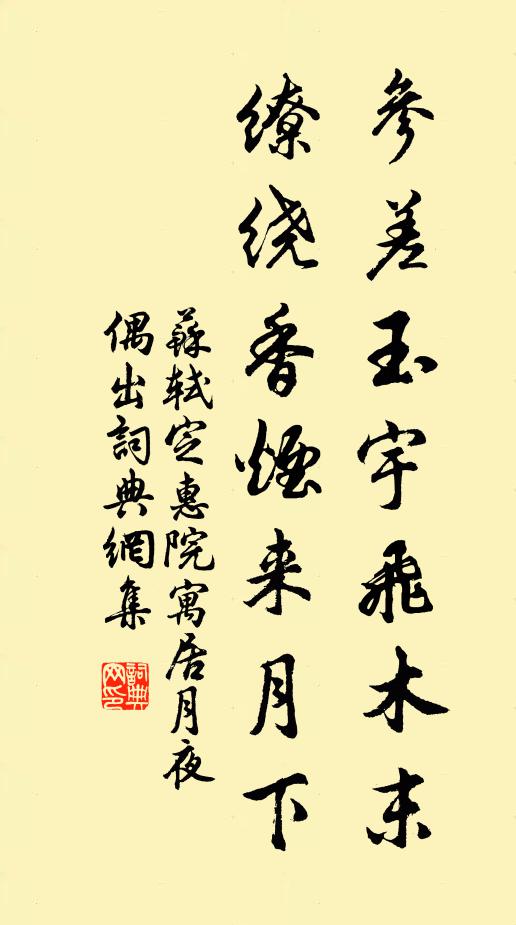 參差玉宇飛木末
繚绕香煙来月下
蘇軾定惠院寓居月夜
偶出詞典網集
詞典
网印